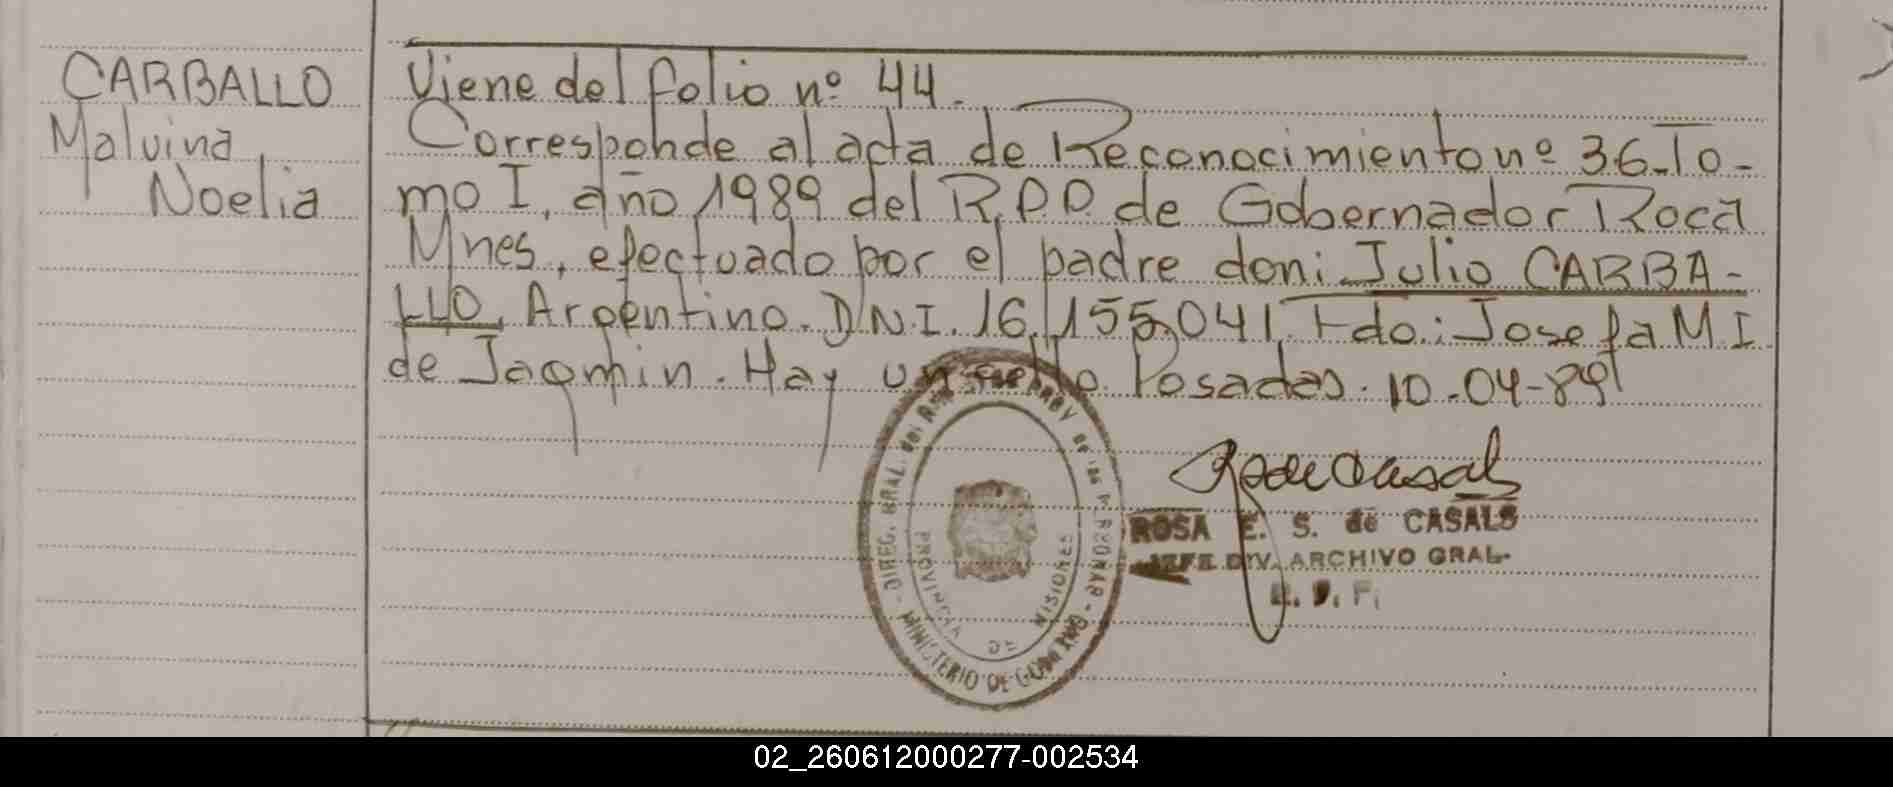 CARBALLO
Malvina
Noelia
Viene del folio nº 44.
Corresponde al acta de Reconocimiento nº 36-To-
mo I, año 1989 del R.P.P. de Gobernador Roca
Mnes, efectuado por el padre don: Julio CARBA-
LLO, Argentino. D.N.I. 16.155.041. Fdo.: Josefa M.I.
de Jaqmin. Hay un sello. Posadas. 10-04-89
ROSA E. S. de CASALS
JEFE DIV. ARCHIVO GRAL.
DIREC. GRAL. del
de las
MINISTERIO DE
PROVINCIA DE MISIONES
02_260612000277-002534